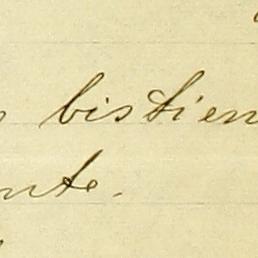 bistien
nte.